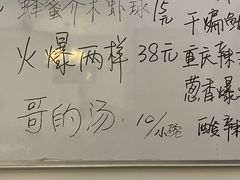 蜂蜜介木虾球 15元 干煸
火爆两样 38元 重庆辣
葱香爆
哥的汤. 10/小碗 酸辣